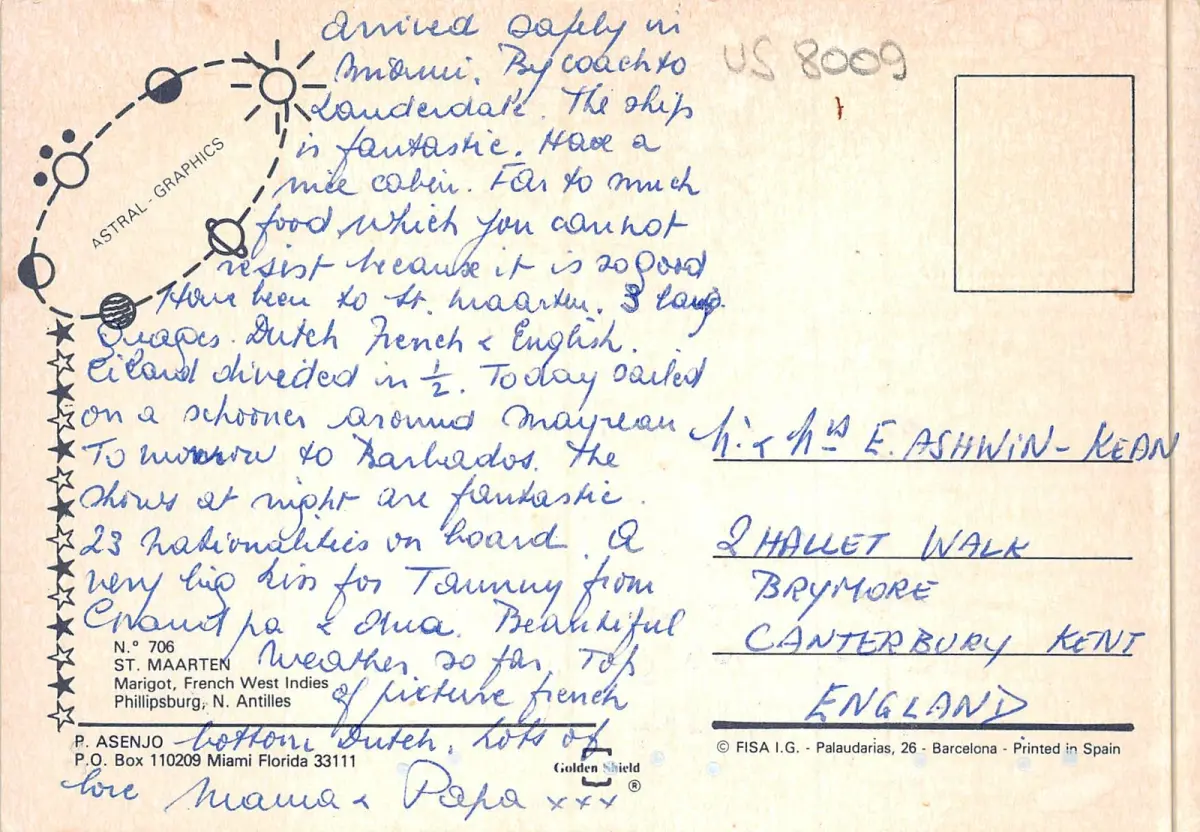 Arrived safely in
Miami. By coach to
Lauderdale. The ship
is fantastic. Have a
nice cabin. Far to much
food which you cannot
resist because it is so good
Have been to St. Maarten. 3 lang-
guages. Dutch French & English.
Eiland divided in 1/2. Today sailed
on a schooner around Mayreau
Tomorrow to Barbados. The
shows at night are fantastic.
23 nationalities on board. A
very big kiss for Tammy from
Grandpa & Oma. Beautiful
weather so far. Top
of picture french
bottom Dutch. Lots of
love Mama & Papa xxx
ASTRAL-GRAPHICS
N.º 706
ST. MAARTEN
Marigot, French West Indies
Phillipsburg, N. Antilles
P. ASENJO
P.O. Box 110209 Miami Florida 33111
Golden Shield
®
US 8009
M. & Mrs E. ASHWIN-KEAN
2 HALLET WALK
BRYMORE
CANTERBURY KENT
ENGLAND
© FISA I.G. - Palaudarias, 26 - Barcelona - Printed in Spain